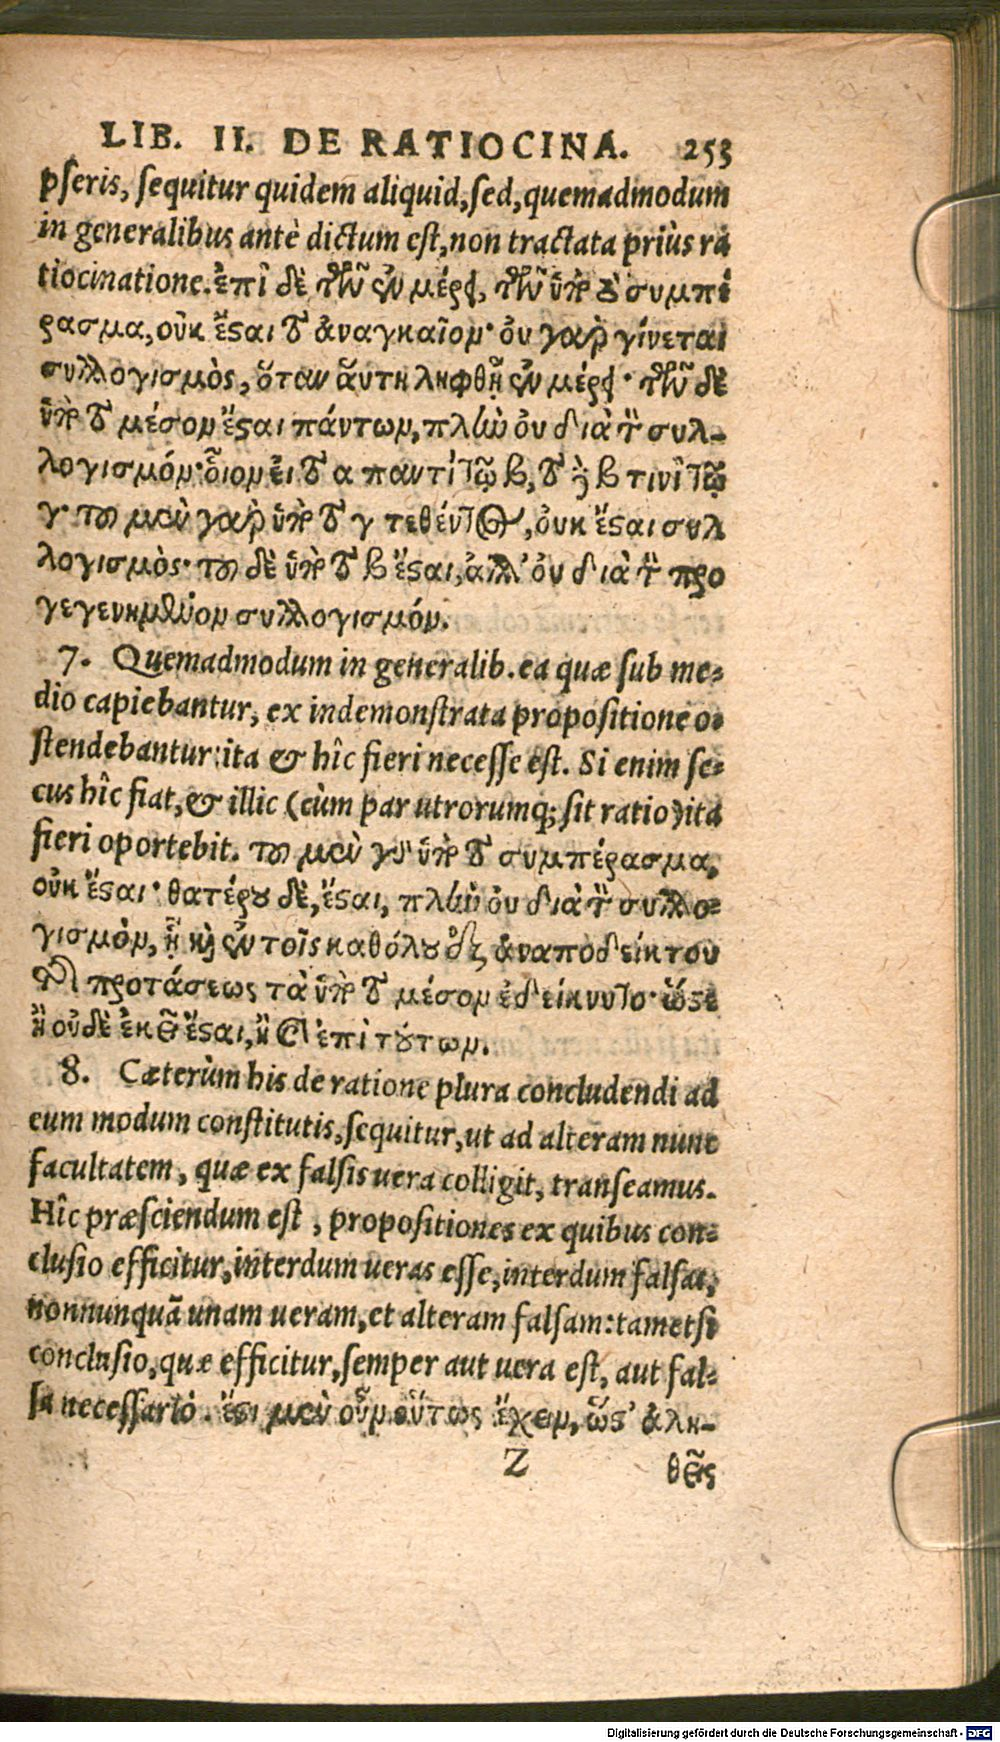 LIB. II. DE RATIOCINA. 253
pſeris, ſequitur quidem aliquid, ſed, quemadmodum
in generalibus antè dictum eſt, non tractata priùs ra
tiocinatione. ἐπὶ δὲ τῶν ἐν μέρει, τῶν ὑπὸ τὸ συμπέ
ρασμα, οὐκ ἔσαι τὸ ἀναγκαῖον· οὐ γαρ γίνεται
συλλογισμὸς, ὅταν αὕτη ληφθῇ ἐν μέρει· τῶν δὲ
ὑπὸ τὸ μέσον ἔσαι πάντων, πλὴν οὐ διὰ τὸν συλ-
λογισμόν· οἷον εἰ τὸ α παντὶ τῷ β, τὸ δὲ β τινὶ τῷ
γ· τοῦ μὲν γαρ ὑπὸ τὸ γ τεθέντος, οὐκ ἔσαι συλ
λογισμὸς· τοῦ δὲ ὑπὸ τὸ β ἔσαι, ἀλλ' οὐ διὰ τὸν προ
γεγενημένον συλλογισμόν.
7. Quemadmodum in generalib. ea quæ ſub me-
dio capiebantur, ex indemonſtrata propoſitione o-
ſtendebantur: ita & hîc fieri neceſſe eſt. Si enim ſe-
cus hîc fiat, & illic (cùm par utrorumq; ſit ratio) ita
fieri oportebit. τοῦ μὲν γὰρ ὑπὸ τὸ συμπέρασμα,
οὐκ ἔσαι· θατέρου δὲ, ἔσαι, πλὴν οὐ διὰ τὸν συλλο-
γισμὸν, ᾗ καὶ ἐν τοῖς καθόλου ἐξ ἀναποδείκτου
τῆς προτάσεως τὰ ὑπὸ τὸ μέσον ἐδείκνυτο· ὥσε
ἢ οὐδὲ ἐκεῖ ἔσαι, ἢ καὶ ἐπὶ τούτων.
8. Cæterùm his de ratione plura concludendi ad
eum modum conſtitutis, ſequitur, ut ad alteram nunc
facultatem, quæ ex falſis uera colligit, tranſeamus.
Hîc præſciendum eſt, propoſitiones ex quibus con-
cluſio efficitur, interdum ueras eſſe, interdum falſas,
nonnunquã unam ueram, et alteram falſam: tametſi
concluſio, quæ efficitur, ſemper aut uera eſt, aut fal-
ſa neceſſariò. ἔσι μὲν οὖν οὕτως ἔχειν, ὥσ' ἀλη-
Z θεῖς
Digitalisierung gefördert durch die Deutsche Forschungsgemeinschaft - DFG